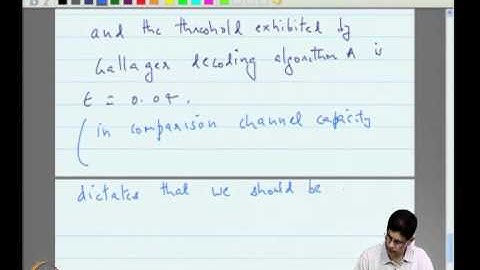 and the threshold exhibited by
Gallager decoding algorithm A is
t = 0.04.
(in comparison channel capacity
dictates that we should be